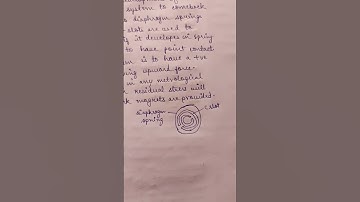 system to comeback
diaphragm springs
slots are used to
it developes in spring
to have point contact
is to have a +ve
upward force.
in any metrological
residual stress will
magnets are provided.
diaphragm
spring
slot